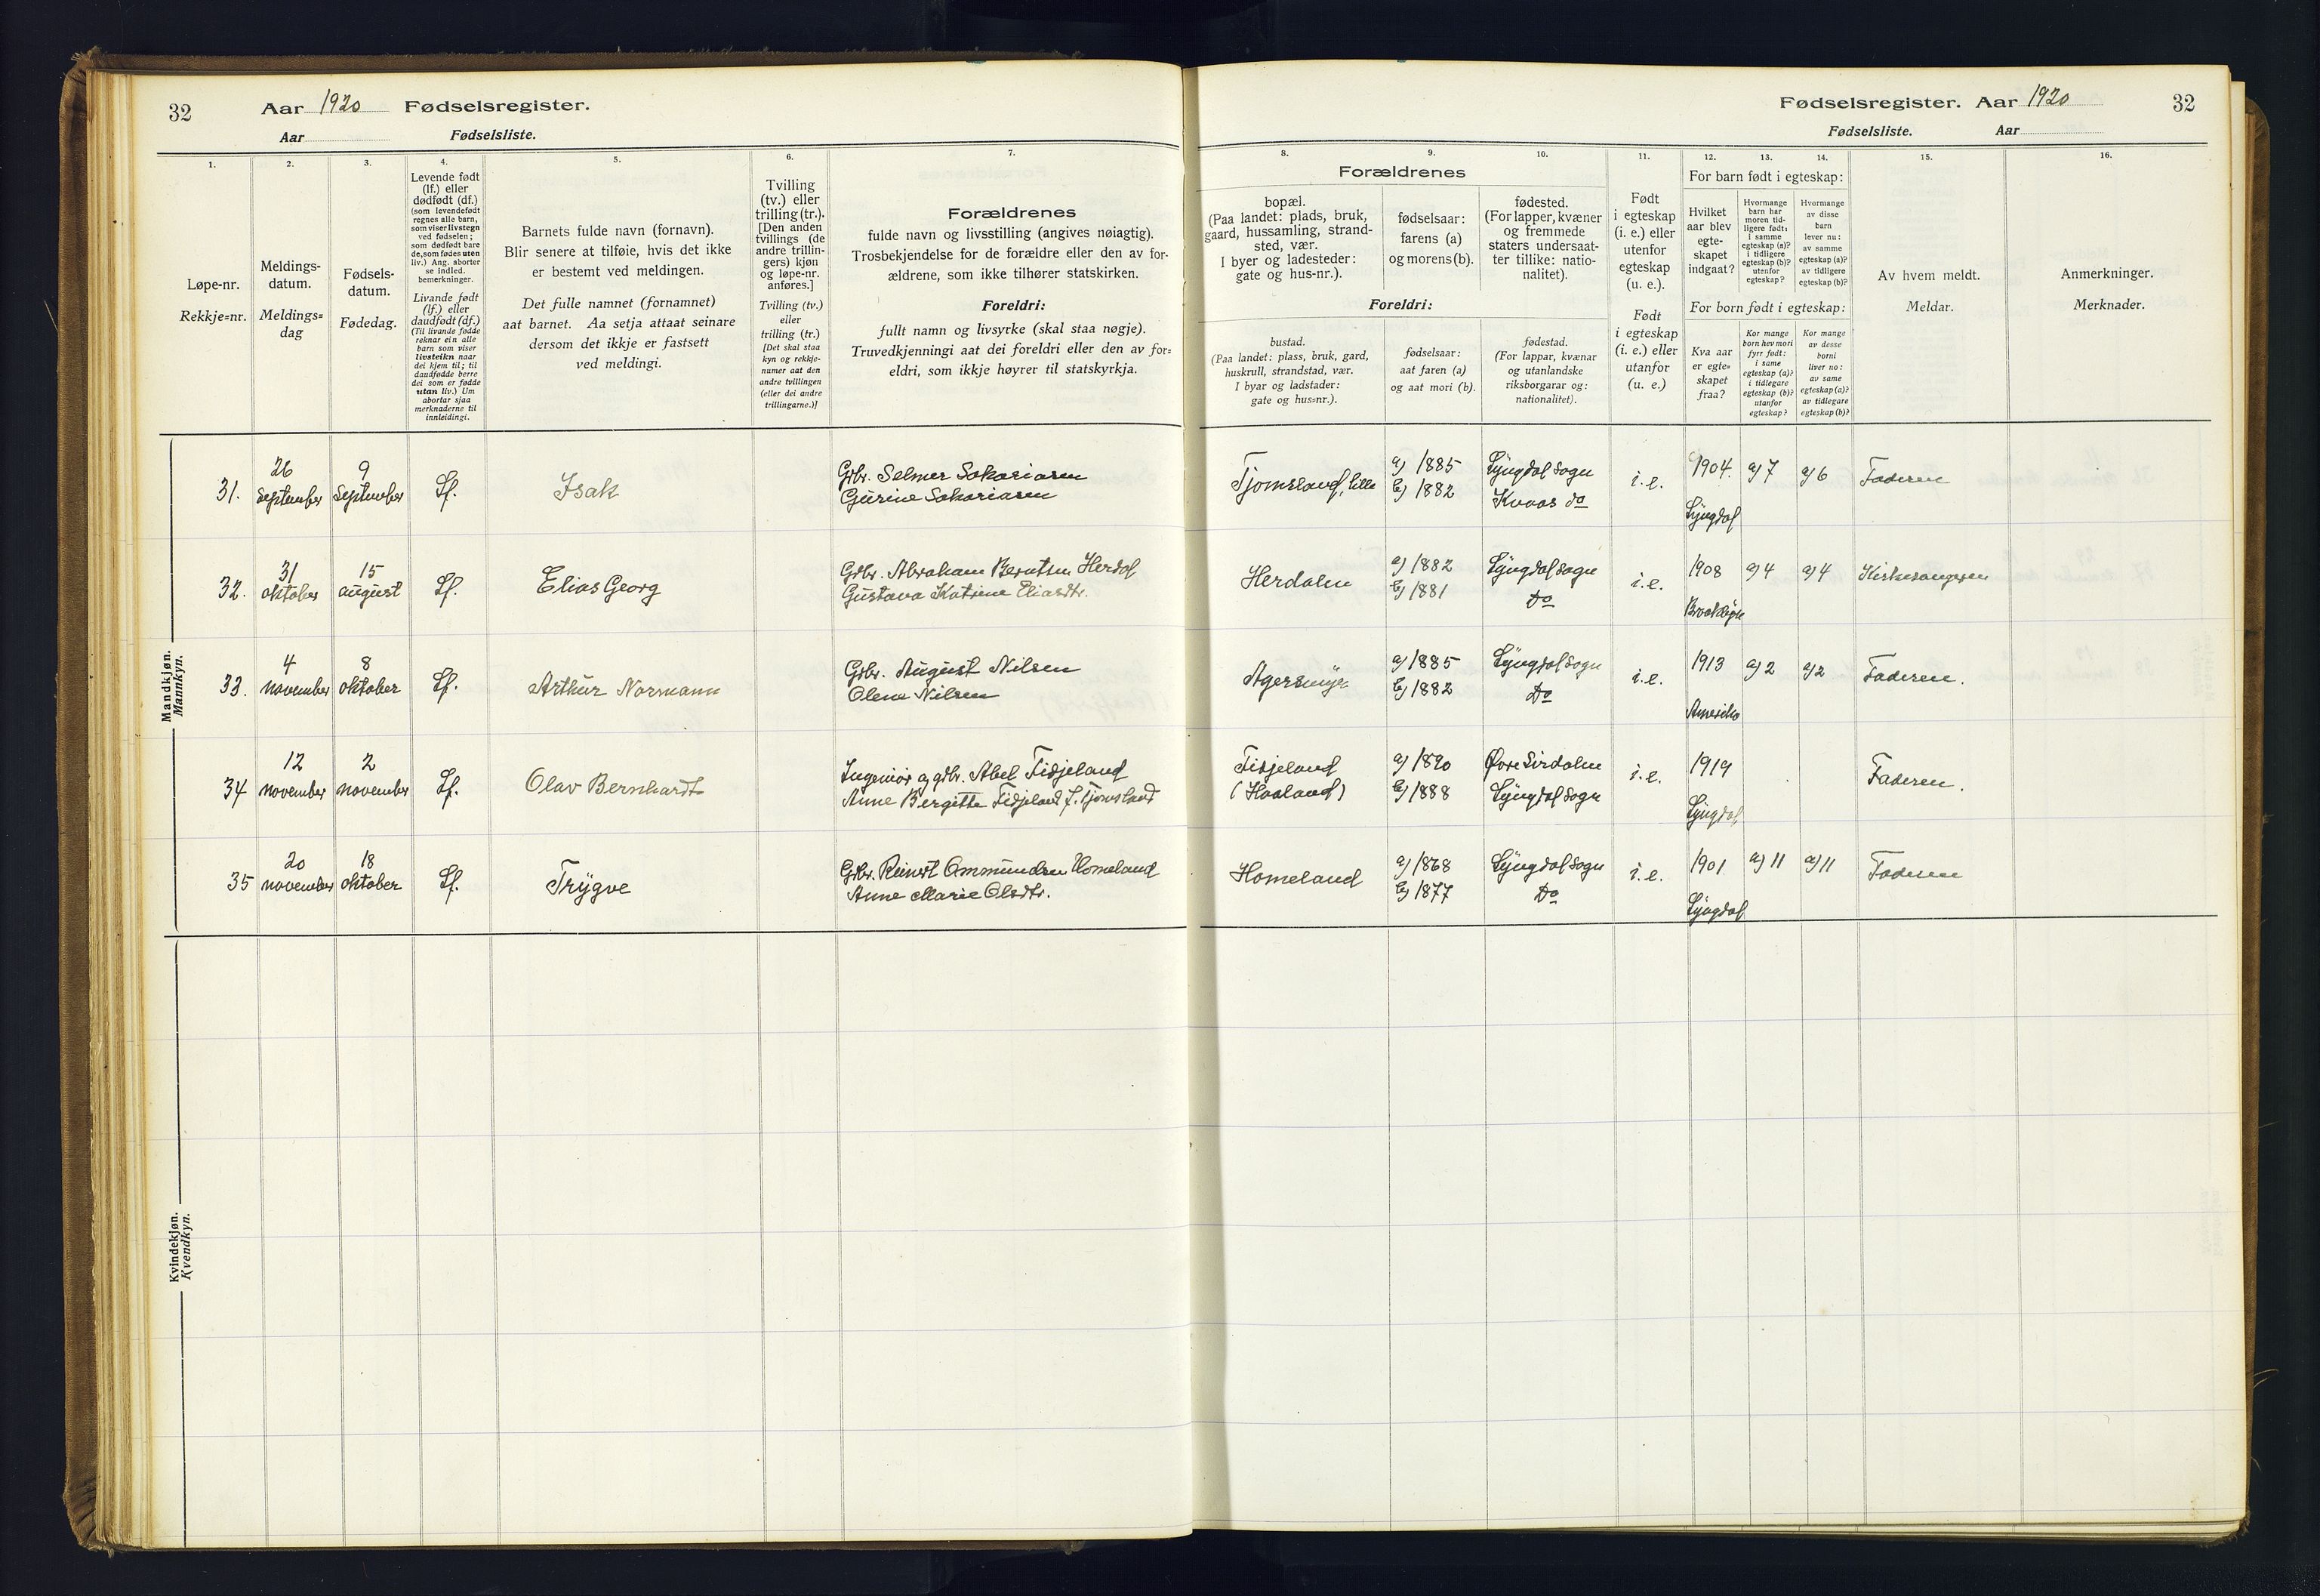 32
Aar 1920 Fødselsregister.
Aar Fødselsliste.
1.
Løpe-nr.
Rekkje=nr.
2.
Meldings-
datum.
Meldings=
dag
3.
Fødsels-
datum.
Fødedag.
4.
Levende født
(lf.) eller
dødfødt (df.)
(som levendefødt
regnes alle barn,
som viser livstegn
ved fødselen;
som dødfødt bare
de, som fødes uten
liv.) Ang. aborter
se indled.
bemerkninger.
Livande født
(lf.) eller
daudfødt (df.)
(Til livande fødde
reknar ein alle
barn som viser
livsteikn naar
dei kjem til; til
daudfødde berre
dei som er fødde
utan liv.) Um
abortar sjaa
merknaderne til
innleidingi.
5.
Barnets fulde navn (fornavn).
Blir senere at tilføie, hvis det ikke
er bestemt ved meldingen.
Det fulle namnet (fornamnet)
aat barnet. Aa setja attaat seinare
dersom det ikkje er fastsett
ved meldingi.
6.
Tvilling
(tv.) eller
trilling (tr.).
[Den anden
tvillings (de
andre trillin-
gers) kjøn
og løpe-nr.
anføres.]
Tvilling (tv.)
eller
trilling (tr.)
[Det skal staa
kyn og rekkje-
numer aat den
andre tvillingen
(eller dei andre
trillingarne.)]
7.
Forældrenes
fulde navn og livsstilling (angives nøiagtig).
Trosbekjendelse for de forældre eller den av for-
ældrene, som ikke tilhører statskirken.
Foreldri:
fullt namn og livsyrke (skal staa nøgje).
Truvedkjenningi aat dei foreldri eller den av for=
eldri, som ikkje høyrer til statskyrkja.
Mandkjøn.
Mannkyn.
31.
26
september
9
september
Lf.
Isak
Gdbr. Selmer Sakariasen
Gurine Sakariasen
32.
31
oktober
15
august
Lf.
Elias Georg
Gdbr. Abraham Berntsen Herdal
Gustava Katrine Eliasdtr.
33.
4
november
8
oktober
Lf.
Arthur Normann
Gdbr. August Nilsen
Olena Nilsen
34
12
november
2
november
Lf.
Olav Bernhardt
Ingeniør og gdbr. Abel Fidjeland
Anne Bergitte Fidjeland f. Tjomsland
35
20
november
18
oktober
Lf.
Trygve
Gdbr. Reinert Ommundsen Homeland
Anne Marie Olsdtr.
Kvindekjøn.
Kvendkyn.
Fødselsregister. Aar 1920
32
Fødselsliste. Aar
8.
Forældrenes
bopæl.
(Paa landet: plads, bruk,
gaard, hussamling, strand-
sted, vær.
I byer og ladesteder:
gate og hus-nr.).
Foreldri:
bustad.
(Paa landet: plass, bruk, gard,
huskrull, strandstad, vær.
I byar og ladstader:
gate og hus=nr.).
9.
fødselsaar:
farens (a)
og morens (b).
fødselsaar:
aat faren (a)
og aat mori (b).
10.
fødested.
(For lapper, kvæner
og fremmede
staters undersaat-
ter tillike: natio-
nalitet).
fødestad.
(For lappar, kvænar
og utanlandske
riksborgarar og:
nationalitet).
11.
Født
i egteskap
(i. e.) eller
utenfor
egteskap
(u. e.).
Født
i egteskap
(i. e.) eller
utanfor
(u. e.)
12.
13.
14.
For barn født i egteskap:
Hvilket
aar blev
egte-
skapet
indgaat?
Hvormange
barn har
moren tid-
ligere født:
i samme
egteskap (a)?
i tidligere
egteskap (b)?
utenfor
egteskap?
Hvormange
av disse
barn
lever nu:
av samme
egteskap (a)?
av tidligere
egteskap (b)?
For born født i egteskap:
Kva aar
er egte=
skapet
fraa?
Kor mange
born hev mori
fyrr født:
i same
egteskap (a)?
i tidlegare
egteskap (b)?
utanfor
egteskap?
Kor mange
av desse
borni
liver no:
av same
egteskap (a)?
av tidlegare
egteskap (b)?
15.
Av hvem meldt.
Meldar.
16.
Anmerkninger.
Merknader.
Tjomsland, lille
a) 1885
b) 1882
Lyngdal sogn
Kvaas do
i. e.
1904.
Lyngdal
a) 7
a) 6
Faderen
Herdalen
a) 1882
b) 1881
Lyngdal sogn
Do
i. e.
1908
a) 4
a) 4
Kirkesangeren
Agersmyr
a) 1885
b) 1882
Lyngdal sogn
Do
i. e.
1913
Amerika
a) 2
a) 2
Faderen.
Fidjeland
(Haaland)
a) 1890
b) 1888
Øvre Sirdalen
Lyngdal sogn
i. e.
1919
Lyngdal
Faderen.
Homeland
a) 1868
b) 1877
Lyngdal sogn
Do
i. e.
1901
Lyngdal
a) 11
a) 11
Faderen